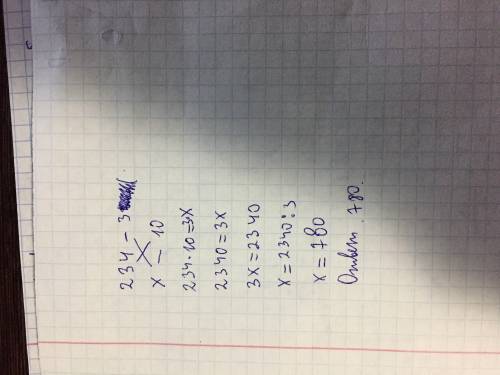 234 - 3
x - 10
234·10=3x
2340=3x
3x=2340
x=2340:3
x=780
Ответ. 780.